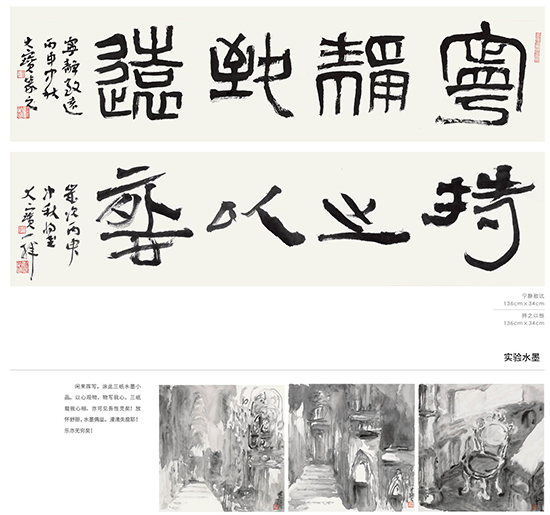 寧靜致遠
寧靜致遠
丙申中秋
大寶篆之
持之以恆
歲次丙申
大寶一揮
宁静致远
136cm×34cm
持之以恒
136cm×34cm
实验水墨
闲来挥写，涂此三纸水墨小
品。以心观物，物写我心，三纸
载我心相，亦可见吾性灵矣！放
怀舒卷，水墨偶溢，漫漶失度耶！
乐亦无穷矣！